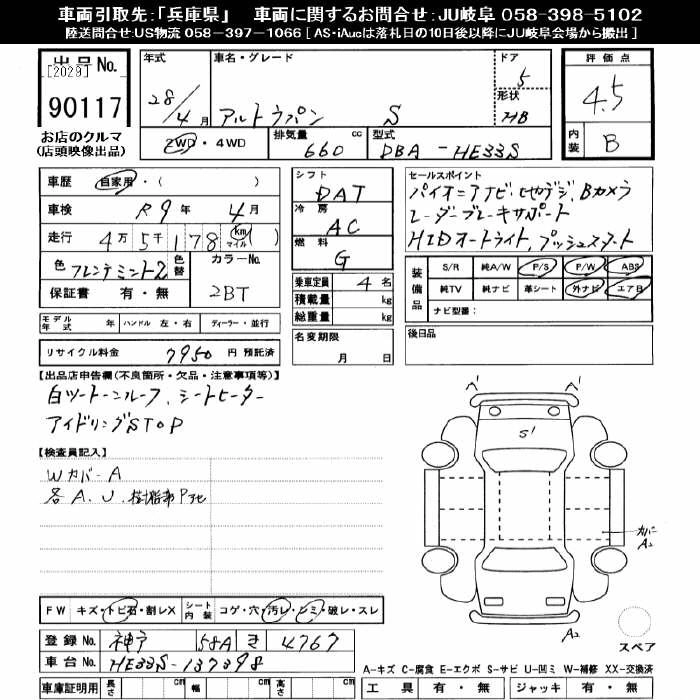 車両引取先:「兵庫県」 車両に関するお問合せ:JU岐阜 058-398-5102
陸送問合せ:US物流 058-397-1066 [ AS・iAucは落札日の10日後以降にJU岐阜会場から搬出 ]
出品No.
[2029]
90117
お店のクルマ
(店頭映像出品)
年式
28/4月
車名・グレード
アルトラパン S
ドア
5
形状
HB
評価点
4.5
内装
B
2WD・4WD
排気量 660 cc
型式 DBA-HE33S
車歴 自家用・( )
車検 R9年 4月
走行 4万5千178 km マイル ( )
色 フレンチミント2
色替
カラーNo. 2BT
保証書 有・無
シフト
DAT
冷房
AC
燃料
G
乗車定員 4名
積載量 kg
総重量 kg
セールスポイント
パイオニアナビ・地デジ, Bカメラ
レーダーブレーキサポート
HIDオートライト, プッシュスタート
装備品
S/R 純A/W P/S P/W ABS
純TV 純ナビ 革シート 外ナビ エアB
ナビ型番:
モデル年式 年 ハンドル 左・右 ディーラー・並行
名変期限
月 日
後日品
リサイクル料金 7950 円 預託済
【出品店申告欄(不良箇所・欠品・注意事項等)】
白ツートーンルーフ, シートヒーター
アイドリングSTOP
【検査員記入】
Wカバ-A
各A.U.樹脂部Pアセ
A' A'
S'
カバー
A2
A2
スペア
FW キズ・トビ石・割レX シート内装 コゲ・穴・汚レ・シミ・破レ・スレ
登録No. 神戸 58A き 4767
車台No. HE33S-137398
A-キズ C-腐食 E-エクボ S-サビ U-凹ミ W-補修 XX-交換済
車庫証明用 長さ cm 幅 cm 高さ cm
工具 有・無 ジャッキ 有・無